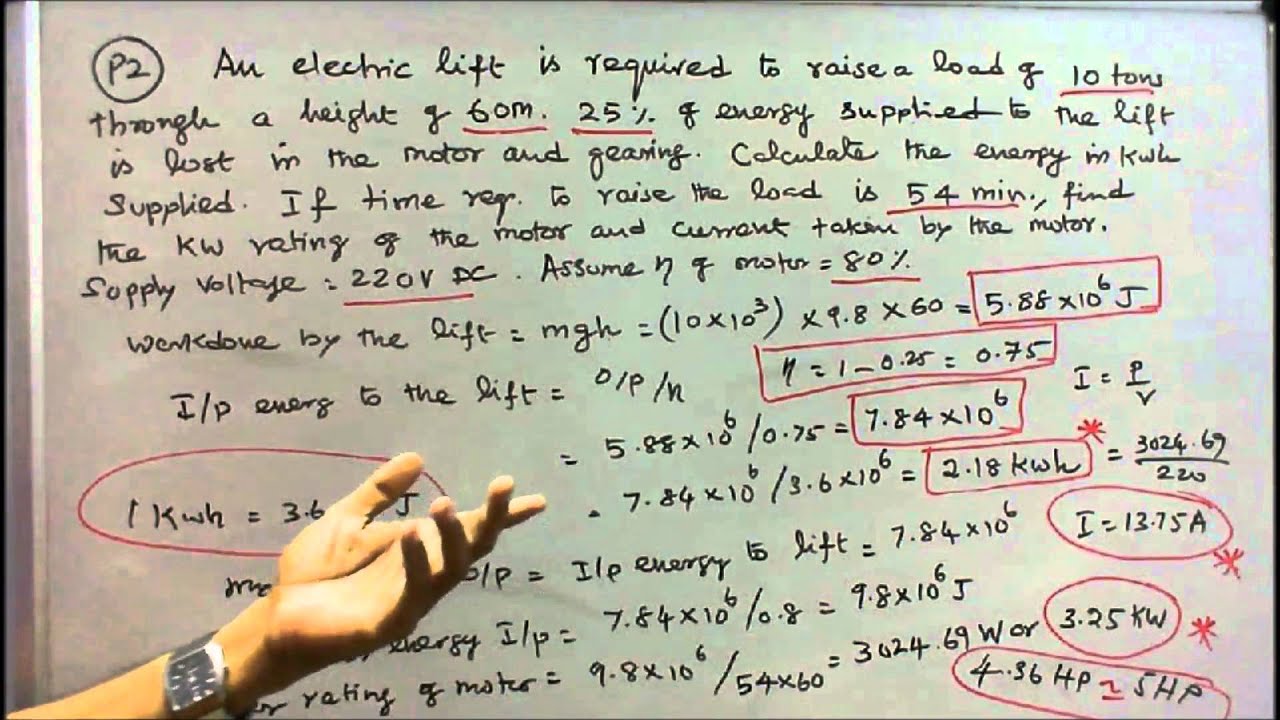 P2 An electric lift is required to raise a load of 10 tons
through a height of 60m. 25% of energy supplied to the lift
is lost in the motor and gearing. Calculate the energy in kwh
supplied. If time req. to raise the load is 54 min., find
the KW rating of the motor and current taken by the motor.
Supply voltage = 220V DC. Assume η of motor = 80%
workdone by the lift = mgh = (10×10³) × 9.8 × 60 = 5.88 ×10⁶ J
η = 1 – 0.25 = 0.75
I/p energ to the lift = O/P/η
I = P/V
= 5.88×10⁶ / 0.75 = 7.84 ×10⁶
= 7.84 ×10⁶ / 3.6×10⁶ = 2.18 kwh
= 3024.69 / 220
1 Kwh = 3.6 J
I = 13.75A
O/P = I/p energy to lift = 7.84 ×10⁶
energy I/p = 7.84×10⁶ / 0.8 = 9.8×10⁶ J
rating of motor = 9.8×10⁶ / 54×60 = 3024.69 W or 3.25 KW
4.36 HP ≃ 5HP